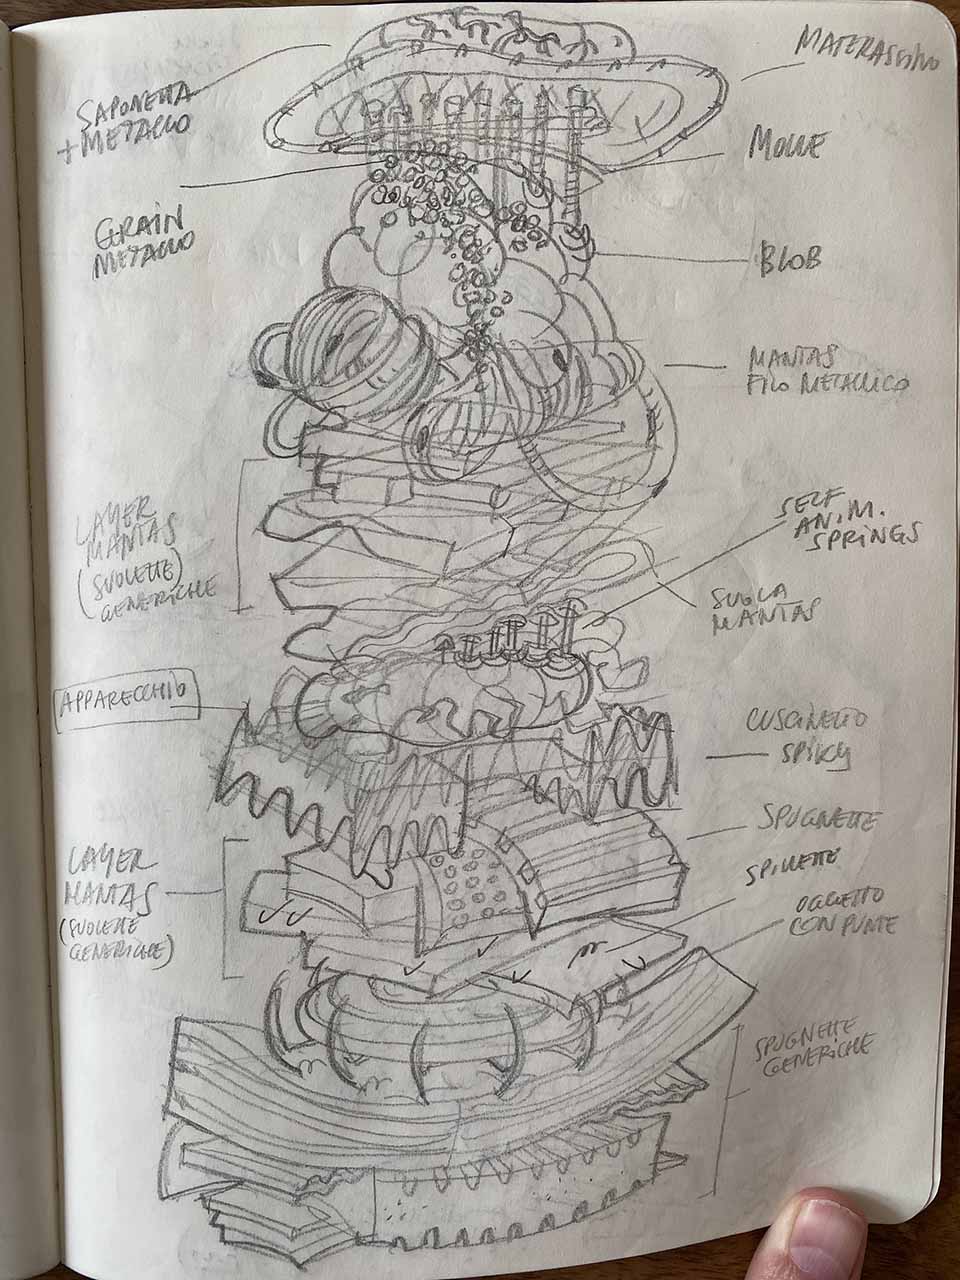 MATERASSINO
SAPONETTA
+ METALLO
MOLLE
GRAIN
METALLO
BLOB
MANTAS
FILO METALLICO
LAYER
MANTAS
(SUOLETTE)
GENERICHE
SELF
AN.M.
SPRINGS
SUOLA
MANTAS
APPARECCHIO
CUSCINETTO
SPIKY
SPUGNETTE
LAYER
MANTAS
(SUOLETTE
GENERICHE)
SPILLETTE
OGGETTO
CON PUNTE
SPUGNETTE
GENERICHE